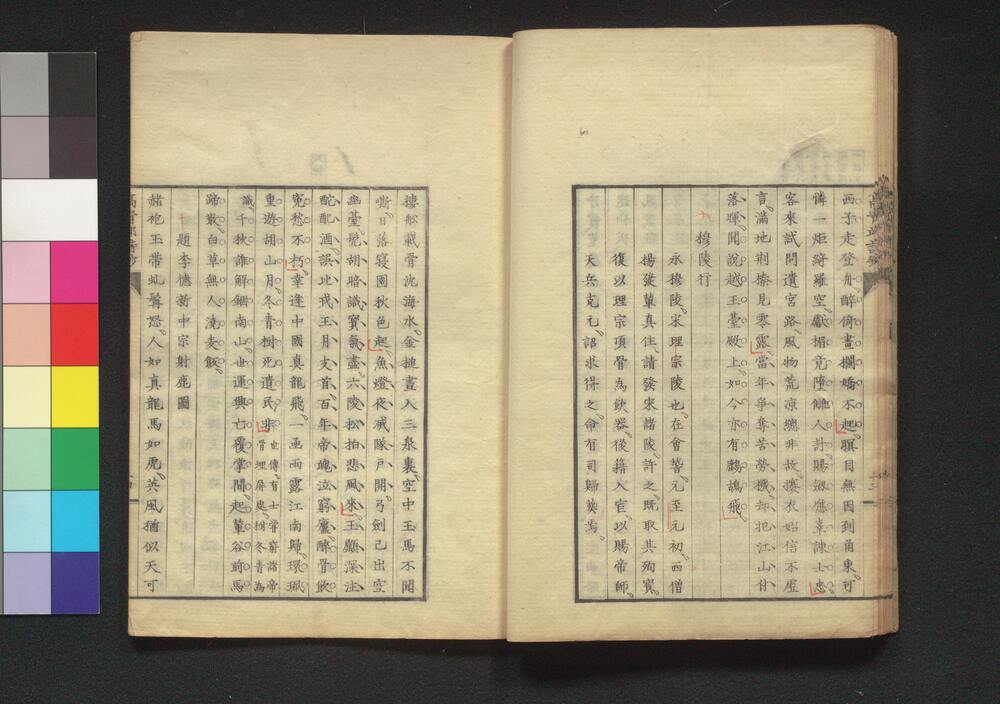 西子走登舟醉倚畫欄嬌不起瞋目無因到甬東可
憐一炬綺羅空獻楣竟墮讎人計賜劍應辜諫士忠
客來試問遺宮路風物荒涼總非故攓衣始信不虛
言滿地荆榛見零露當年爭奪苦勞機却把江山付
落暉聞說越王臺殿上如今亦有鷓鴣飛
穆陵行
永穆陵宋理宗陵也在會稽元至元初西僧
楊發輦真伽請發宋諸陵許之既取其殉寶
復以理宗頂骨為飲器後籍入官以賜帝師
天兵克元詔求得之命有司歸葬焉
樓船載骨沈海水金搥晝入三泉裏空中玉馬不聞
嘶日落寢園秋色起魚燈夜滅隧戶開弓劍已出空
幽臺髡胡暗識寶氣盡六陵松柏悲風來玉顱深注
酡酡酒誤比戎王月支首百年帝魄泣穹廬醉骨飲
寃愁不朽幸逢中國真龍飛一函雨露江南歸環珮
重遊胡山月冬青樹死遺民非世傳有士嘗竊諸帝
骨埋屏處樹冬青為
識千秋誰解錮南山世運興亡覆掌間起輦谷前馬
蹄散白草無人澆麦飯
題李德新中宗射鹿圖
赭袍玉帶虬髯怒人如真龍馬如虎英風猶似天可